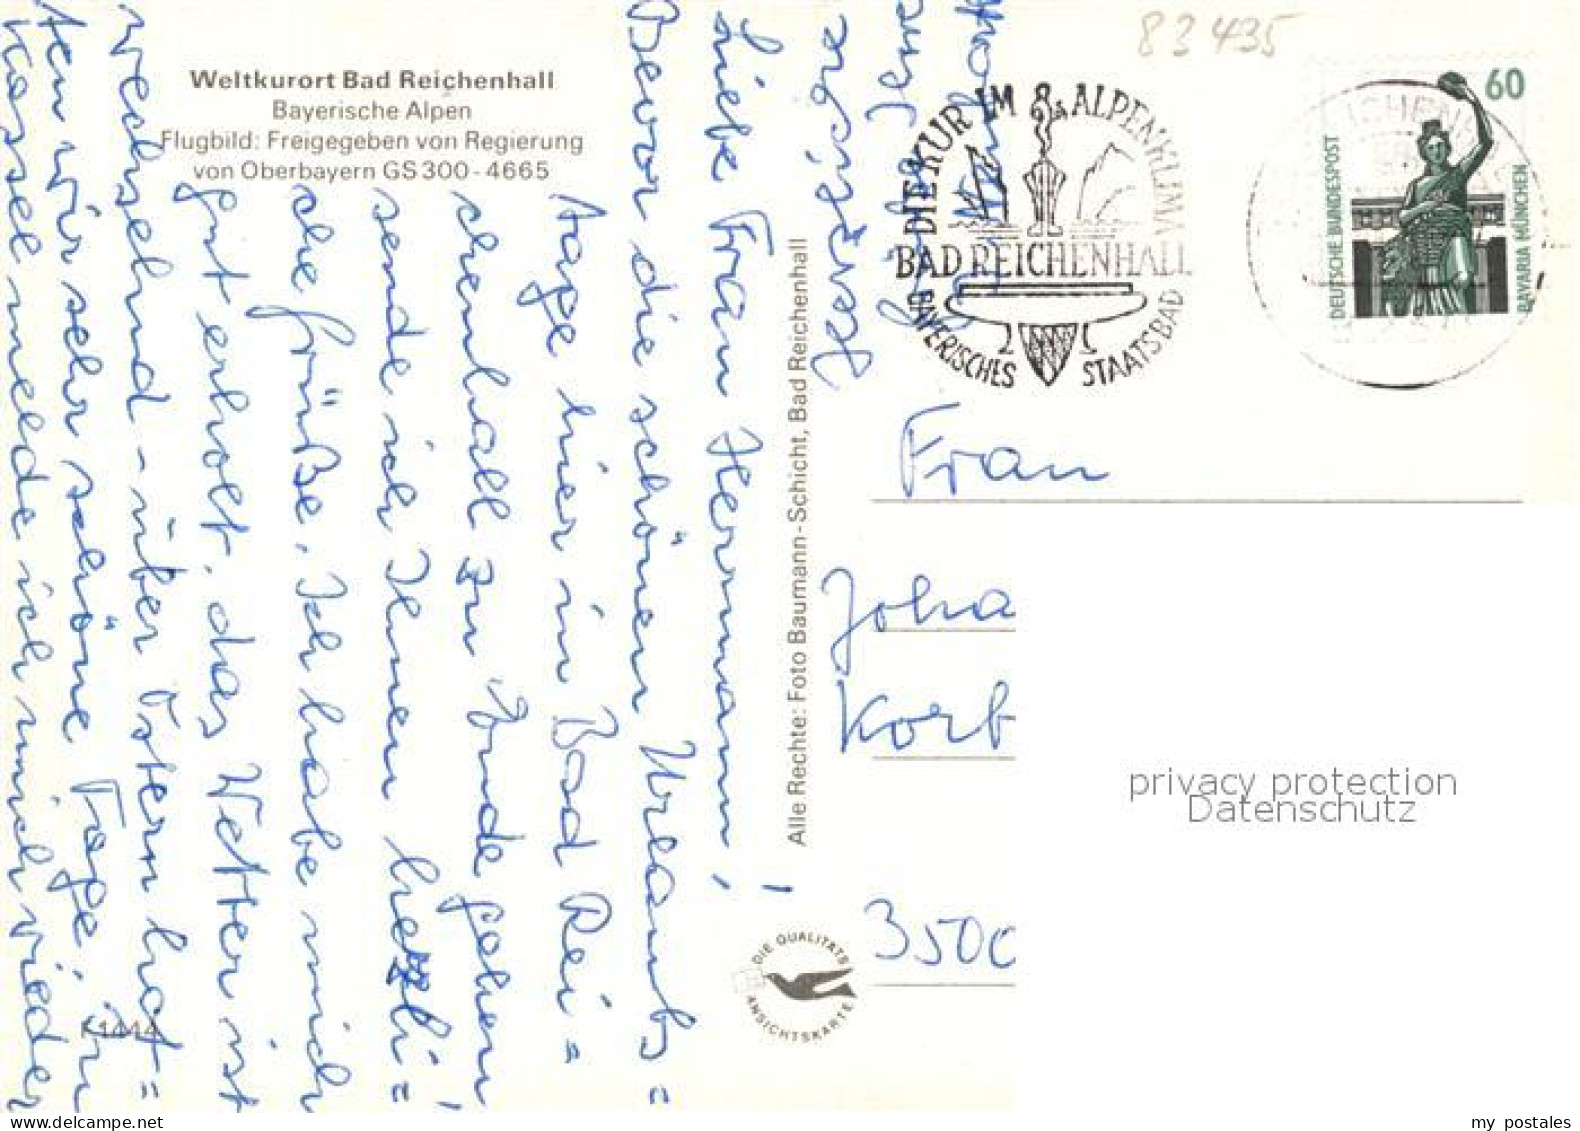 83435
Weltkurort Bad Reichenhall
Bayerische Alpen
Flugbild: Freigegeben von Regierung
von Oberbayern GS 300 - 4665
Liebe Frau Hermann,!
Bevor die schönen Urlaubs=
Tage hier in Bad Rei=
chenhall zu Ende gehen!
sende ich Ihnen herzli=
che Grüße. Ich habe mich
gut erholt, das Wetter ist
wechselnd - über Ostern hat=
ten wir sehr schöne Tage. In
Kassel melde ich mich wieder
Herzliche
Alle Rechte: Foto Baumann-Schicht, Bad Reichenhall
DIE QUALITÄTS
ANSICHTSKARTE
K 1414
DIE KUR IM ALPENKLIMA
BAD REICHENHALL
BAYERISCHES STAATSBAD
60
DEUTSCHE BUNDESPOST
BAVARIA MÜNCHEN
Frau
Joha
Korb
3500
privacy protection
Datenschutz
www.delcampe.net
my_postales